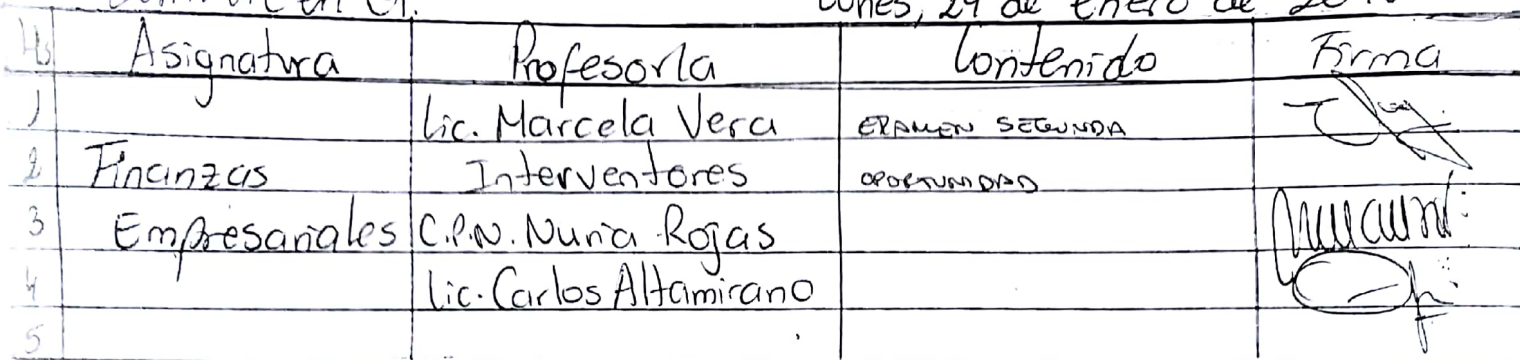 Lunes, 29 de Enero de
Hs Asignatura Profesor/a Contenido Firma
1 Lic. Marcela Vera EXAMEN SEGUNDA
2 Finanzas Interventores OPORTUNIDAD
3 Empresariales C.P.N. Nuria Rojas
4 Lic. Carlos Altamirano
5